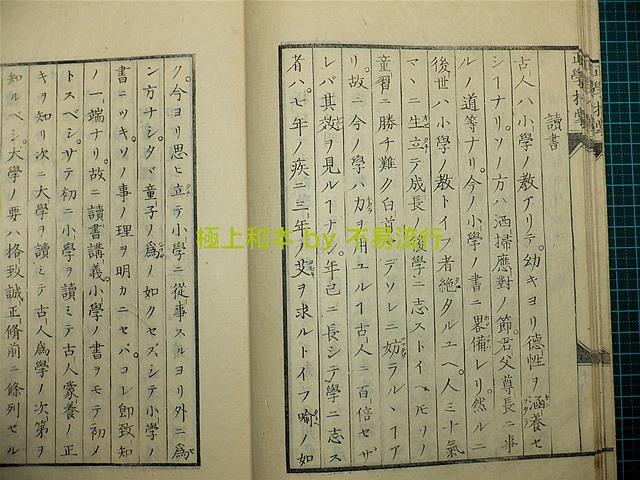 讀書
古人ハ小學ノ敎アリテ。幼キヨリ德性ヲ涵養セ
シ「ナリ。ソノ方ハ洒掃應對ノ節。君父尊長ニ事
ルノ道等ナリ。今ノ小學ノ書ニ畧備レリ。然ルニ
後世ハ小學ノ敎トイフ者絶タルユヘ。人三十氣
マヽニ生立テ成長ノ後學ニ志ストイヘモリノ
童習ニ勝チ難ク白首マデソレニ妨ラルヽ「ア
リ。故ニ今ノ學ハ力ヲ用ユル「古人ニ百倍セザ
レバ其效ヲ見ル「ナシ。年已ニ長シテ學ニ志ス
者ハ。七年ノ疾ニ三年ノ艾ヲ求ルトイフ喩ノ如
ク。今ヨリ思ヒ立テ小學ニ從事スルヨリ外ニ爲
ン方ナシ。タヾ童子ノ爲ノ如クセズ。シテ小學ノ
書ニツキソノ事ノ理ヲ明カニセバ。コレ卽致知
ノ一端ナリ。故ニ讀書講義。小學ノ書ヲモテ初メ
トスベシ。サテ初ニ小學ヲ讀ミテ古人蒙養ノ正
キヲ知リ次ニ大學ヲ讀ミテ古人爲學ノ次第ヲ
知ルベシ。大學ノ要ハ格致誠正脩前ニ條列セル
極上和本 by 不易流行